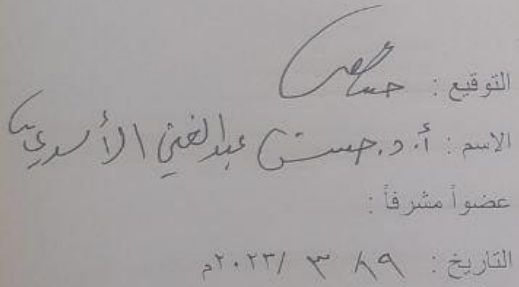 التوقيع :
الاسم : أ. د. حسن عبد الغني الأسدي
عضواً مشرفاً :
التاريخ : ١٩ / ٣ /٢٠٢٣م